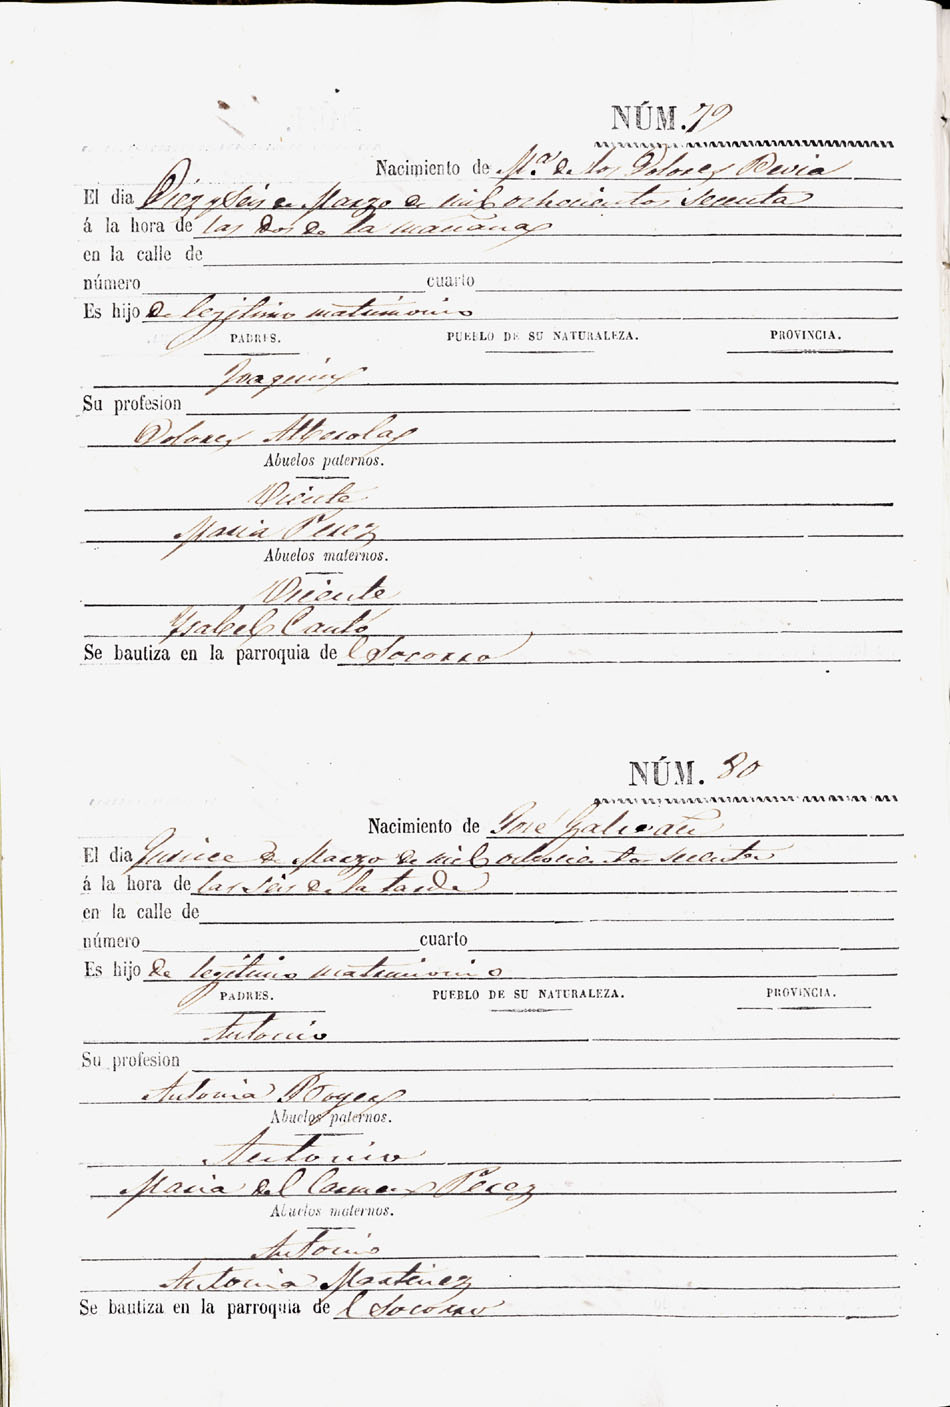 NÚM. 79
Nacimiento de M.ª de los Dolores Devia
El dia Diez y Seis de Marzo de mil ochocientos sesenta
á la hora de las dos de la mañana
en la calle de
número cuarto
Es hijo de legitimo matrimonio
PADRES. PUEBLO DE SU NATURALEZA. PROVINCIA.
Joaquin
Su profesion
Dolores Alberola
Abuelos paternos.
Vicente
Maria Perez
Abuelos maternos.
Vicente
Ysabel Cantó
Se bautiza en la parroquia de l Socorro
NÚM. 80
Nacimiento de José Galvañ
El dia Quince de Marzo de mil ochocientos sesenta
á la hora de las seis de la tarde
en la calle de
número cuarto
Es hijo de legitimo matrimonio
PADRES. PUEBLO DE SU NATURALEZA. PROVINCIA.
Antonio
Su profesion
Antonia
Abuelos paternos.
Antonio
Maria del Carmen Perez
Abuelos maternos.
Antonio
Antonia Martinez
Se bautiza en la parroquia de l Socorro